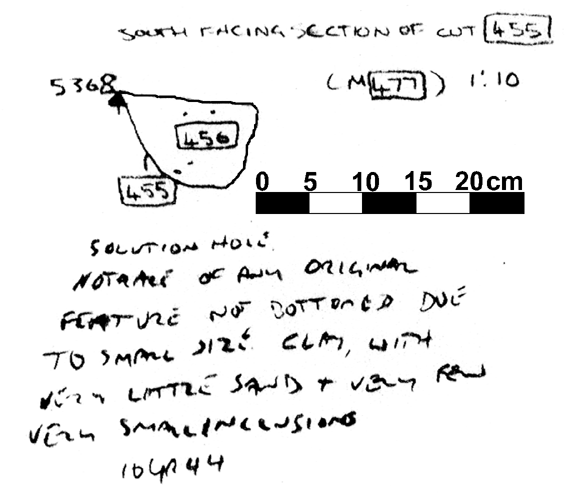 SOUTH FACING SECTION OF CUT 455
(M477) 1:10
5368
456
455
0 5 10 15 20cm
SOLUTION HOLE
NOTRACE OF ANY ORIGINAL
FEATURE NOT BOTTOMED DUE
TO SMALL SIZE. CLAY, WITH
VERY LITTLE SAND + VERY FEW
VERY SMALL INCLUSIONS
10YR44